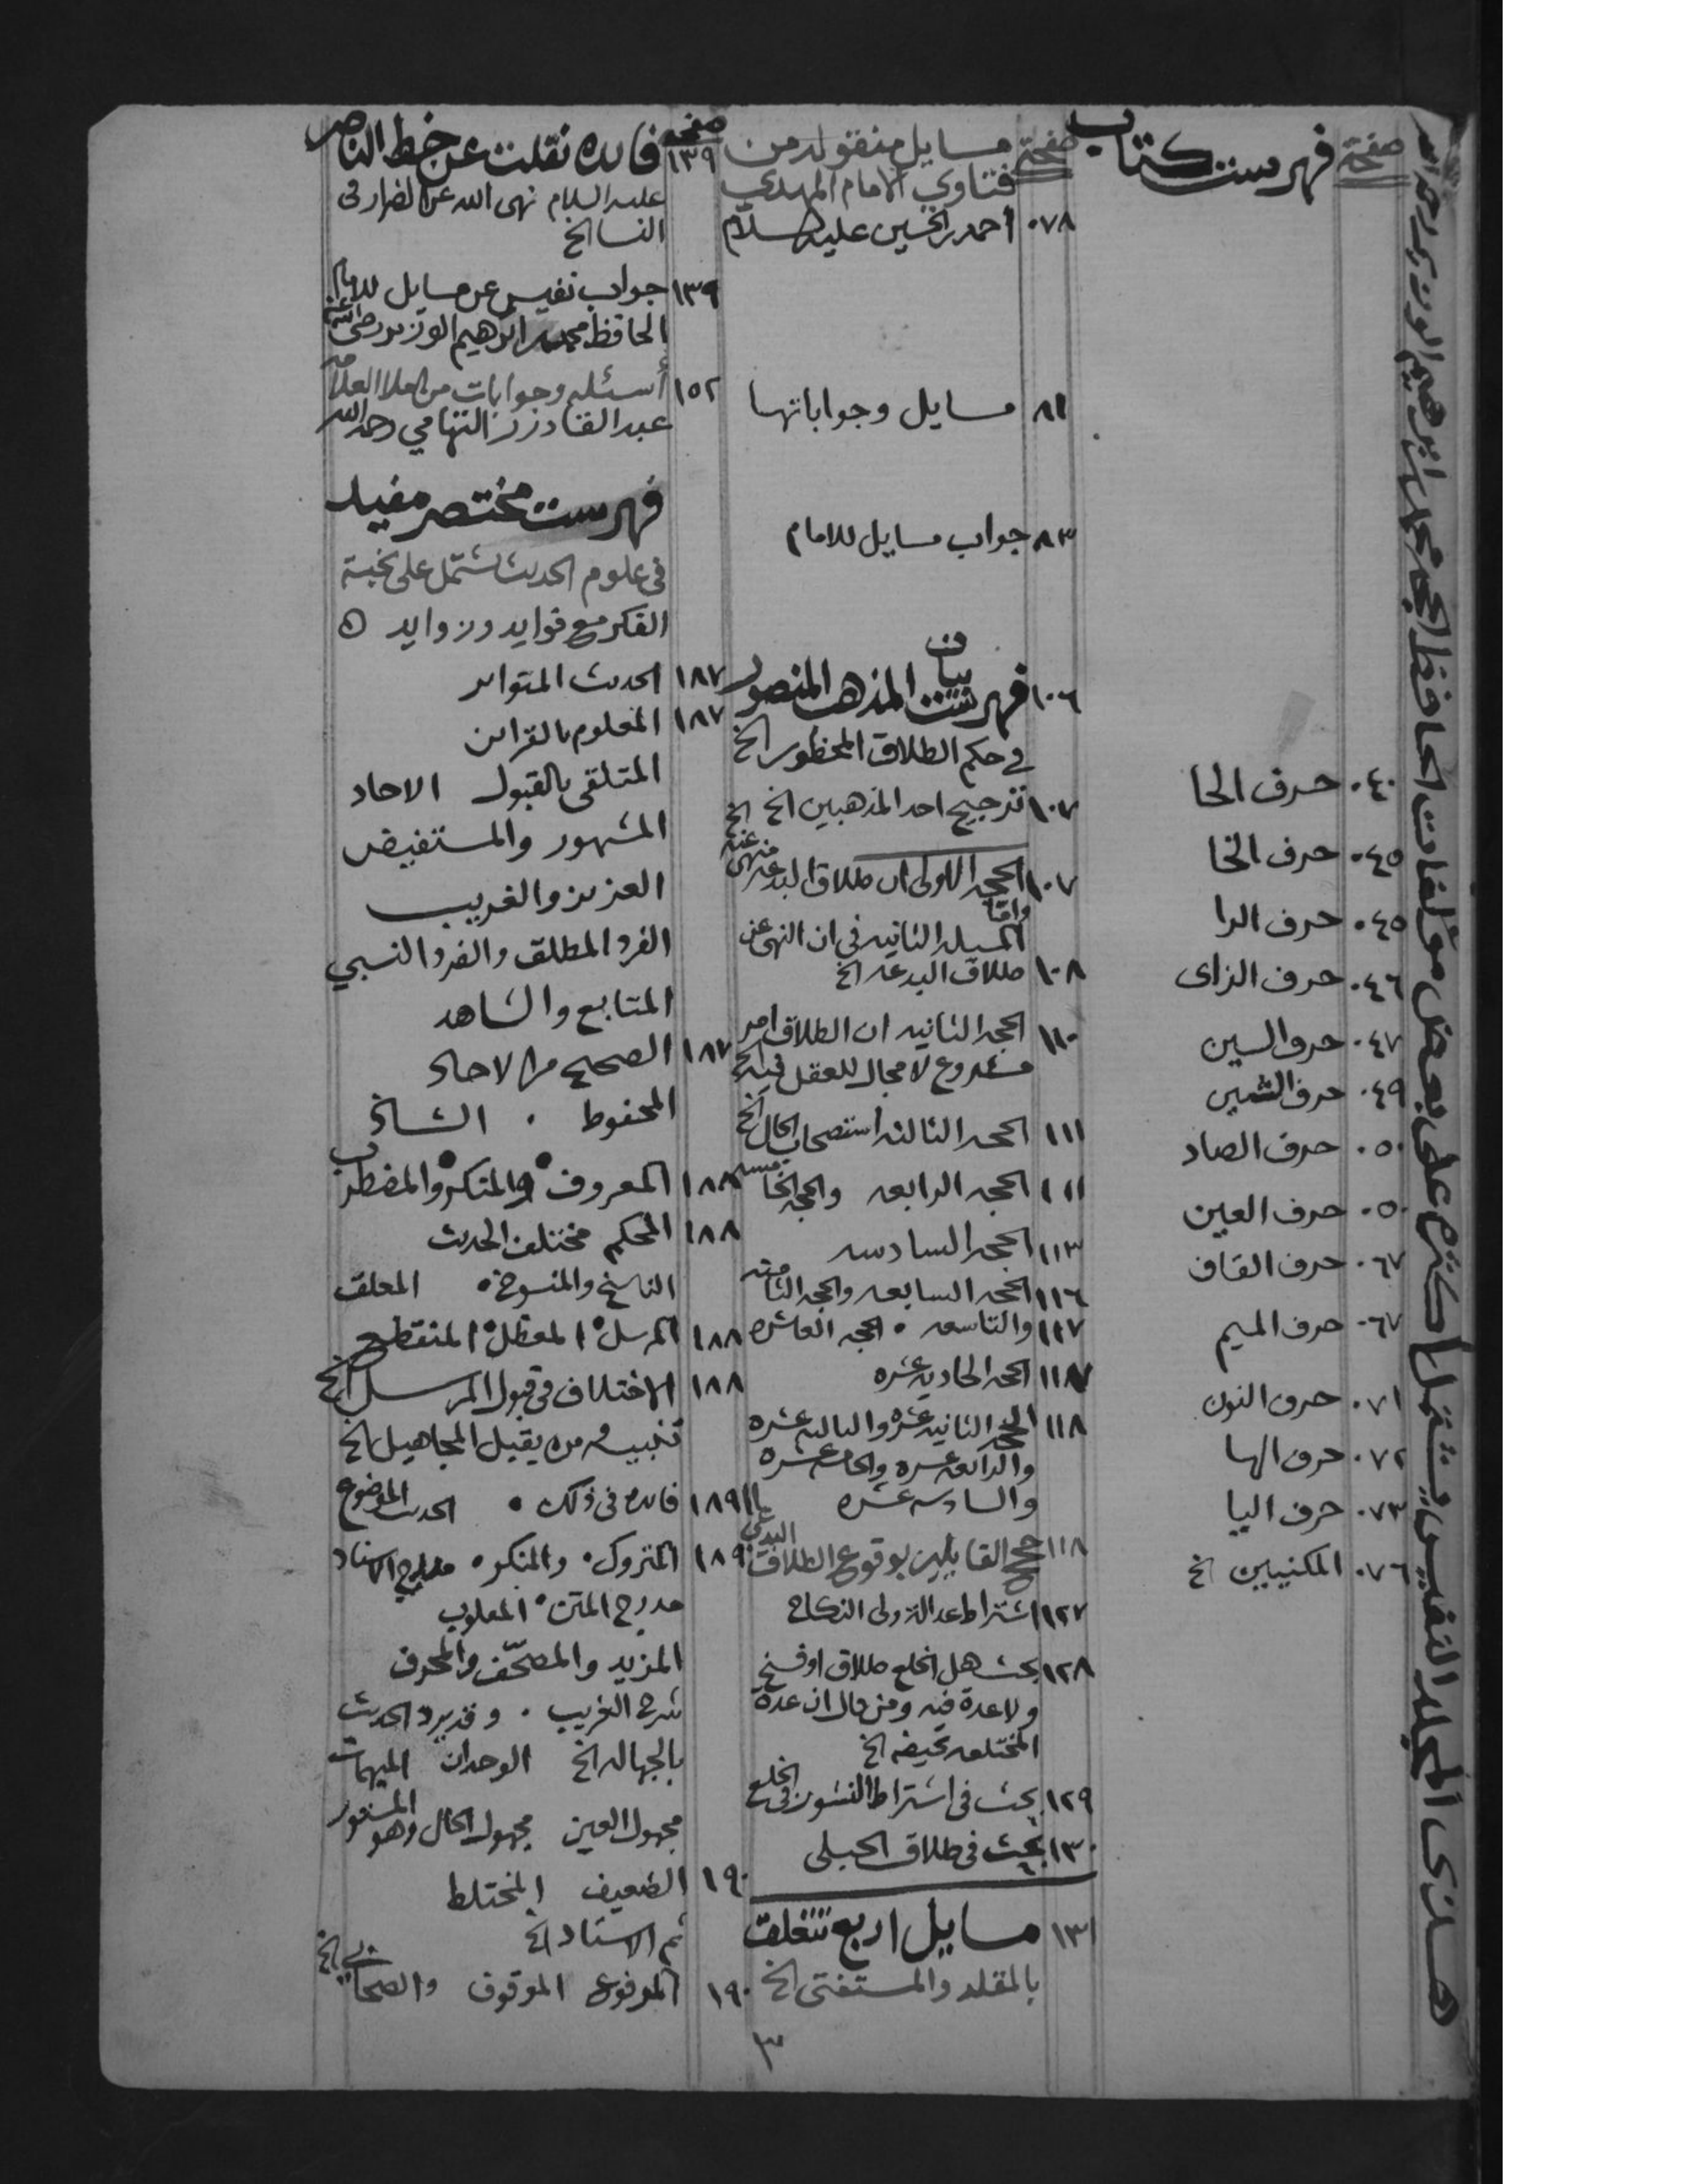 هـذى المجلد النفيس يشتمل أكثره على بعض مؤلفات الحافظ الحجه محمد بن ابرهيم الوزير رحمه الله
صفحة
فهرست كتاب
٠٤٠ حرف الحا
٠٤٥ حرف الخا
٠٤٥ حرف الرا
٠٤٦ حرف الزاى
٠٤٧ حرف السين
٠٤٩ حرف الشين
٠٥٠ حرف الصاد
٠٥٠ حرف العين
٠٦٧ حرف القاف
٠٦٧ حرف الميم
٠٧١ حرف النون
٠٧٢ حرف الها
٠٧٣ حرف اليا
٠٧٦ المكنيين الخ
صفحة
مسايل منقوله من
فتاوي الامام المهدي
٠٧٨ أحمد بن الحسين عليه السلام
٨١ مسايل وجواباتها
٨٣ جواب مسايل للامام
١٠٦ فهرست بيان المذهب المنصور
في حكم الطلاق المحظور الخ
١٠٧ ترجيح احد المذهبين الخ
١٠٧ الحجه الاولى ان طلاق البدعه منهى عنه الخ
واما
المسئله الثانيه فى ان النهى عن
١٠٨ طلاق البدعه الخ
١١٠ الحجه الثانيه ان الطلاق امر
مشروع لا مجال للعقل فيه الخ
١١١ الحجه الثالثه استصحاب الحال الخ
١١١ الحجه الرابعه والحجه الخامسه
١١٣ الحجه السادسه
١١٦ الحجه السابعه والحجه الثامنه
١١٧ والتاسعه • الحجه العاشره
١١٧ الحجه الحاديه عشره
١١٨ الحجه الثانيه عشره والثالثه عشره
والرابعه عشره والخامسه عشره
والسادسه عشره
١١٨ حجج القايلين بوقوع الطلاق البدعي
١٢٧ اشتراط عدالة ولى النكاح
١٢٨ بحث هل الخلع طلاق او فسخ
ولا عدة فيه ومن قال ان عدة
المختلعه حيضه الخ
١٢٩ بحث فى اشتراط النشوز فى الخلع
١٣٠ بحث فى طلاق الحبلى
١٣١ مسايل اربع تتعلق
بالمقلد والمستفتى الخ
صفحه
١٣٩ فايده نقلت عن خط الناصر
عليه السلام نهى الله عن الضرار فى
النسا الخ
١٣٩ جواب نفيس عن مسايل للامام
الحافظ محمد بن ابرهيم الوزير رضى الله عنه
١٥٢ أسئله وجوابات من العلامه
عبد القادر التهامي رحمه الله
فهرست مختصر مفيد
فى علوم الحديث تشتمل على نخبة
الفكر مع فوايد وزوايد ٥
١٨٧ الحديث المتواتر
١٨٧ المعلوم بالقراين
المتلقى بالقبول الاحاد
المشهور والمستفيض
العزيز والغريب
الفرد المطلق والفرد النسبي
المتابع والشاهد
١٨٧ الصحيح من الاحاد
المحفوظ • الشاذ
١٨٨ المعروف • والمنكر • والمضطرب
١٨٨ المحكم مختلف الحديث
الناسخ والمنسوخ • المعلق
١٨٨ المرسل • المعظل • المنقطع
١٨٨ الاختلاف فى قبول المرسل الخ
تنبيه من يقبل المجاهيل الخ
١٨٩ فايده فى ذلك • الحديث الموضوع
١٨٩ المتروك • والمنكر • مدرج الاسناد
مدرج المتن • المقلوب
المزيد والمصحّف والمحرف
شرح الغريب • وقد يرد الحديث
بالجهاله الخ الوحدان المبهمات
مجهول العين مجهول الحال وهو المستور
١٩٠ الضعيف المختلط
ثم الاسناد الخ
١٩٠ المرفوع الموقوف والصحابي الخ
٣